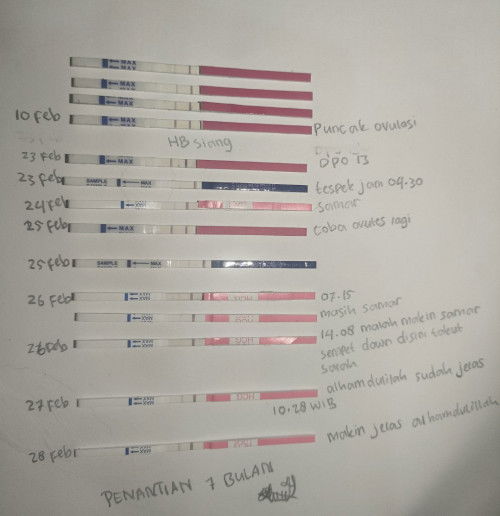 MAX
MAX
MAX
10 Feb MAX Puncak ovulasi
HB siang
23 Feb MAX DPO 13
23 Feb SAMPLE MAX tespek jam 04.30
24 Feb MAX HCG samar
25 Feb MAX coba ovutes lagi
25 Feb SAMPLE MAX
26 Feb MAX HCG 07.15
masih samar
MAX HCG
26 Feb MAX HCG 14.08 malah makin samar
sempet down disini takut
salah
27 Feb MAX HCG alhamdulilah sudah jelas
10.28 WIB
28 Feb MAX HCG makin jelas alhamdulillah
PENANTIAN 7 BULAN